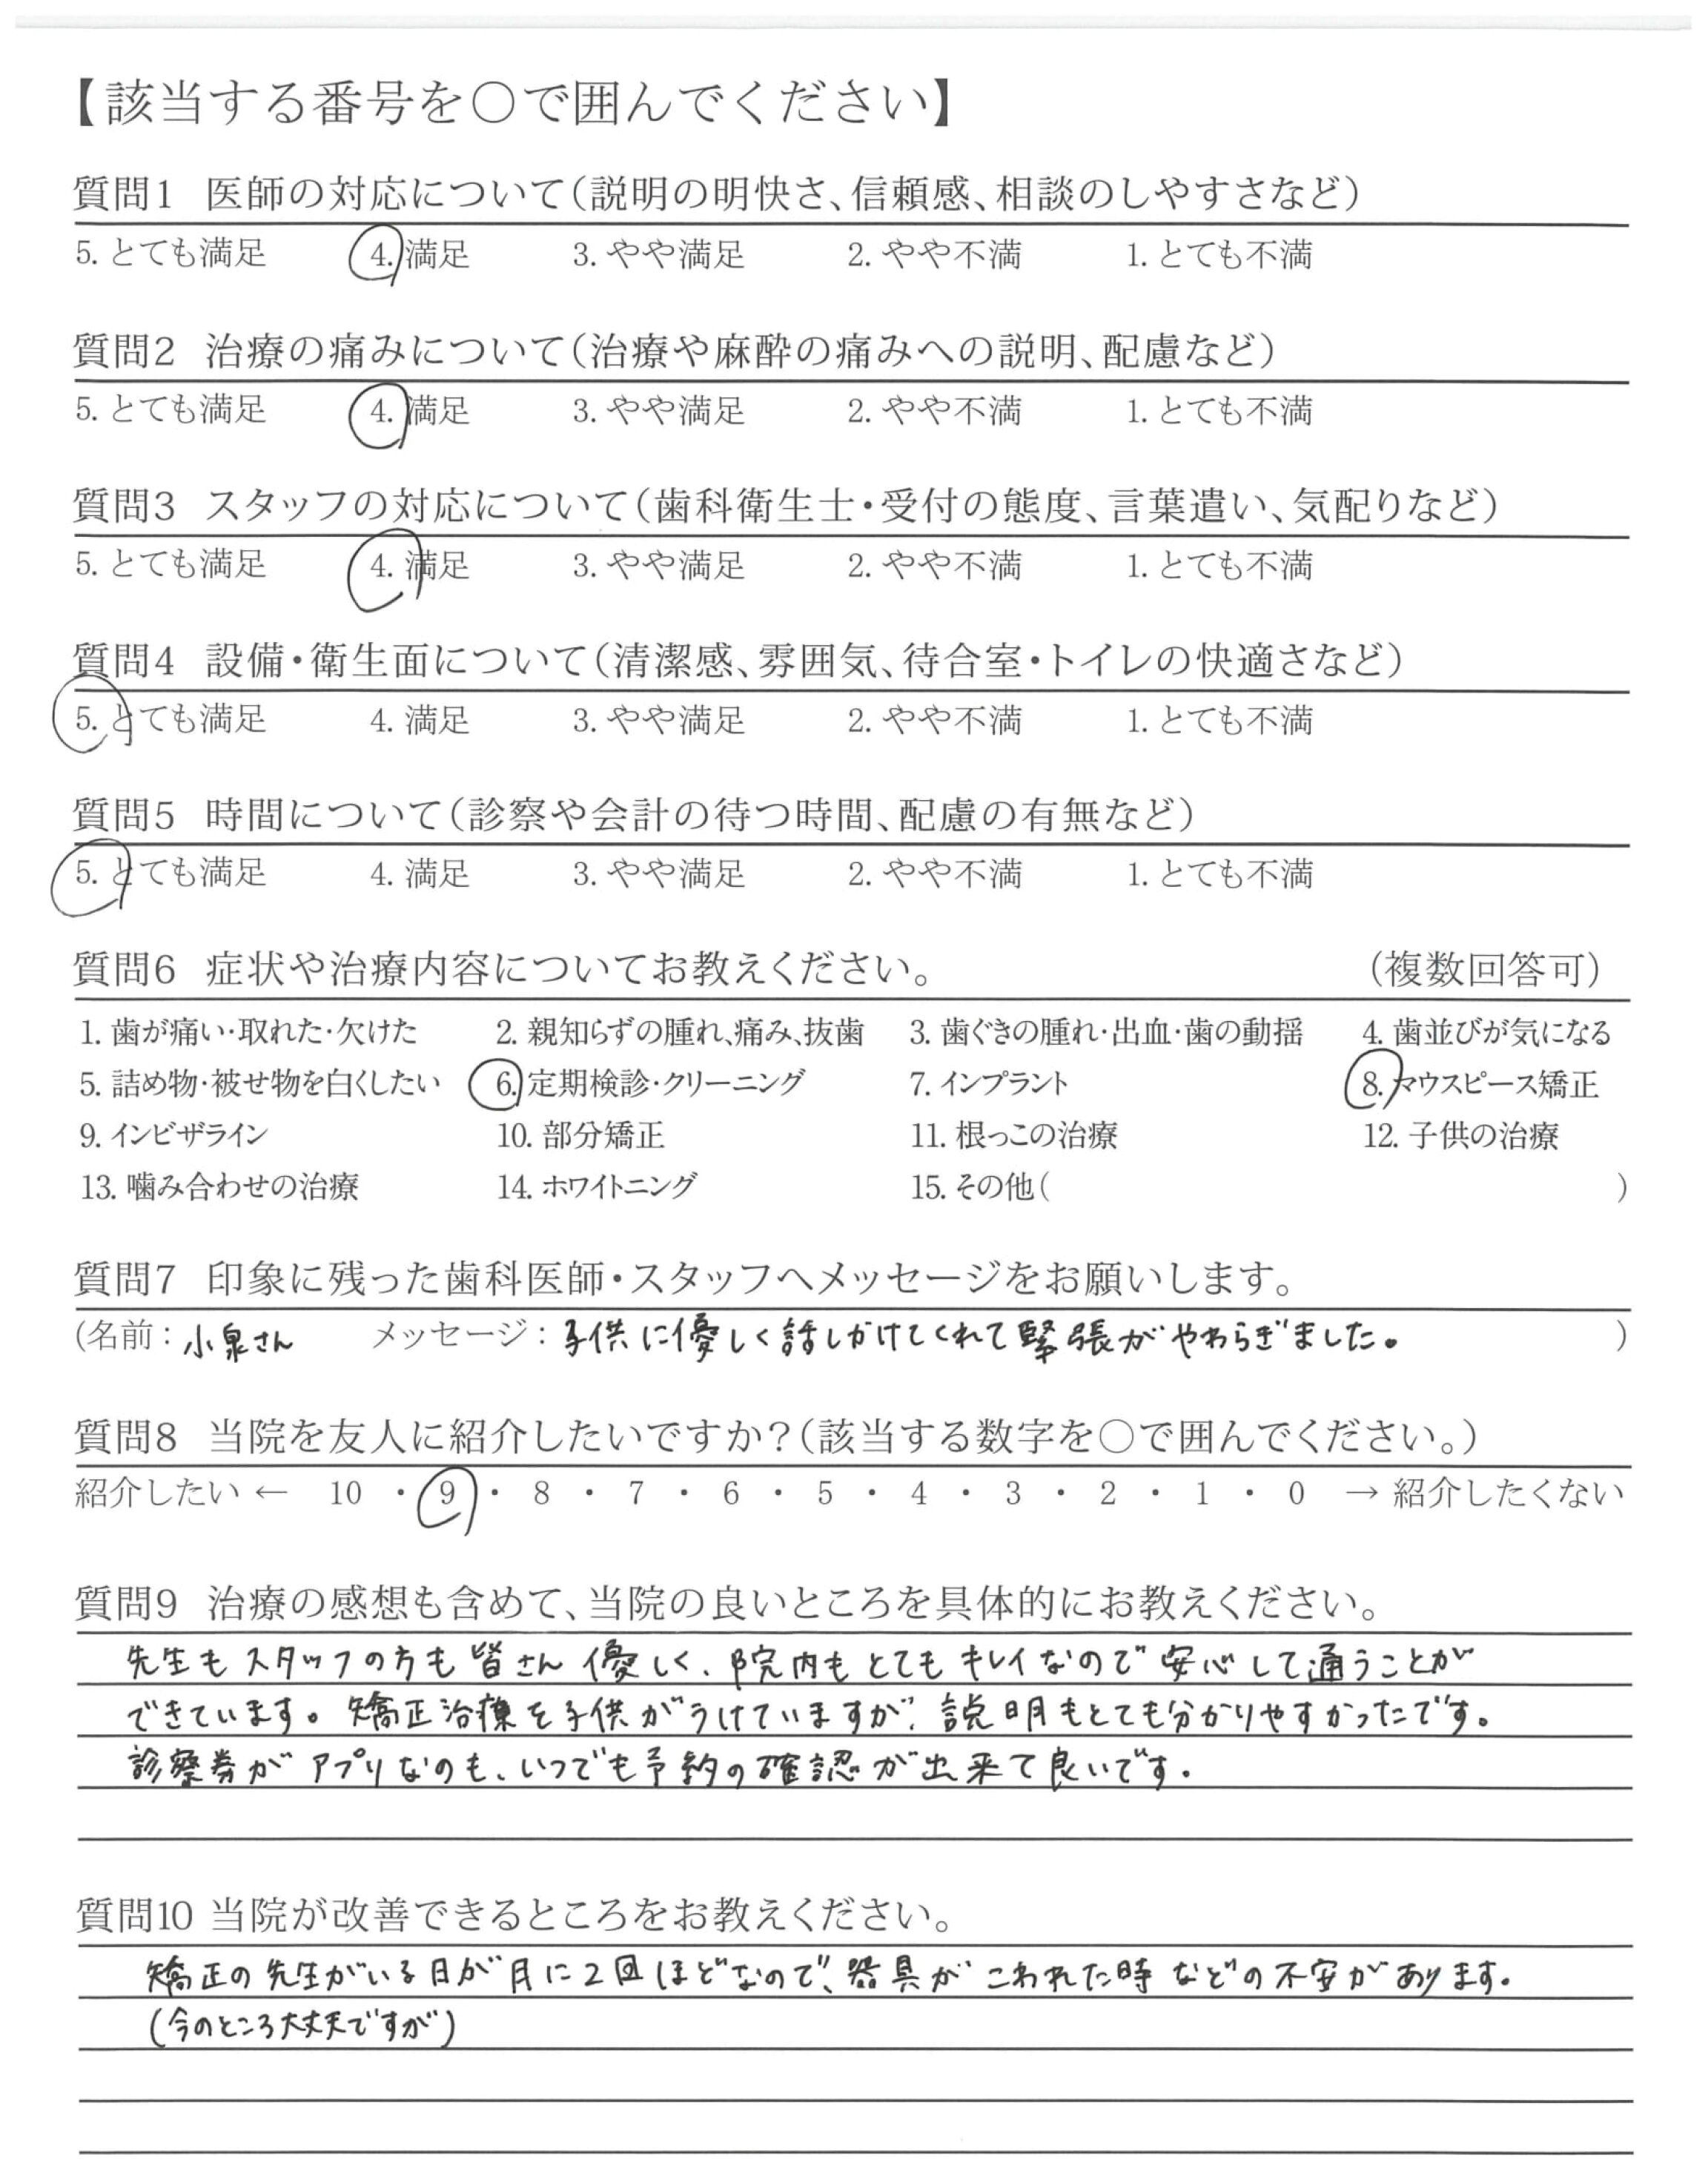 【該当する番号を○で囲んでください】
質問1 医師の対応について(説明の明快さ、信頼感、相談のしやすさなど)
5. とても満足 4. 満足 3. やや満足 2. やや不満 1. とても不満
質問2 治療の痛みについて(治療や麻酔の痛みへの説明、配慮など)
5. とても満足 4. 満足 3. やや満足 2. やや不満 1. とても不満
質問3 スタッフの対応について(歯科衛生士・受付の態度、言葉遣い、気配りなど)
5. とても満足 4. 満足 3. やや満足 2. やや不満 1. とても不満
質問4 設備・衛生面について(清潔感、雰囲気、待合室・トイレの快適さなど)
5. とても満足 4. 満足 3. やや満足 2. やや不満 1. とても不満
質問5 時間について(診察や会計の待つ時間、配慮の有無など)
5. とても満足 4. 満足 3. やや満足 2. やや不満 1. とても不満
質問6 症状や治療内容についてお教えください。 (複数回答可)
1. 歯が痛い・取れた・欠けた 2. 親知らずの腫れ、痛み、抜歯 3. 歯ぐきの腫れ・出血・歯の動揺 4. 歯並びが気になる
5. 詰め物・被せ物を白くしたい 6. 定期検診・クリーニング 7. インプラント 8. マウスピース矯正
9. インビザライン 10. 部分矯正 11. 根っこの治療 12. 子供の治療
13. 噛み合わせの治療 14. ホワイトニング 15. その他( )
質問7 印象に残った歯科医師・スタッフへメッセージをお願いします。
(名前: 小泉さん メッセージ: 子供に優しく話しかけてくれて緊張がやわらぎました。 )
質問8 当院を友人に紹介したいですか?(該当する数字を○で囲んでください。)
紹介したい ← 10 ・ 9 ・ 8 ・ 7 ・ 6 ・ 5 ・ 4 ・ 3 ・ 2 ・ 1 ・ 0 → 紹介したくない
質問9 治療の感想も含めて、当院の良いところを具体的にお教えください。
先生もスタッフの方も皆さん優しく、院内もとてもキレイなので安心して通うことが
できています。矯正治療を子供がうけていますが、説明もとても分かりやすかったです。
診察券がアプリなのも、いつでも予約の確認が出来て良いです。
質問10 当院が改善できるところをお教えください。
矯正の先生がいる日が月に2回ほどなので、器具がこわれた時などの不安があります。
(今のところ大丈夫ですが)